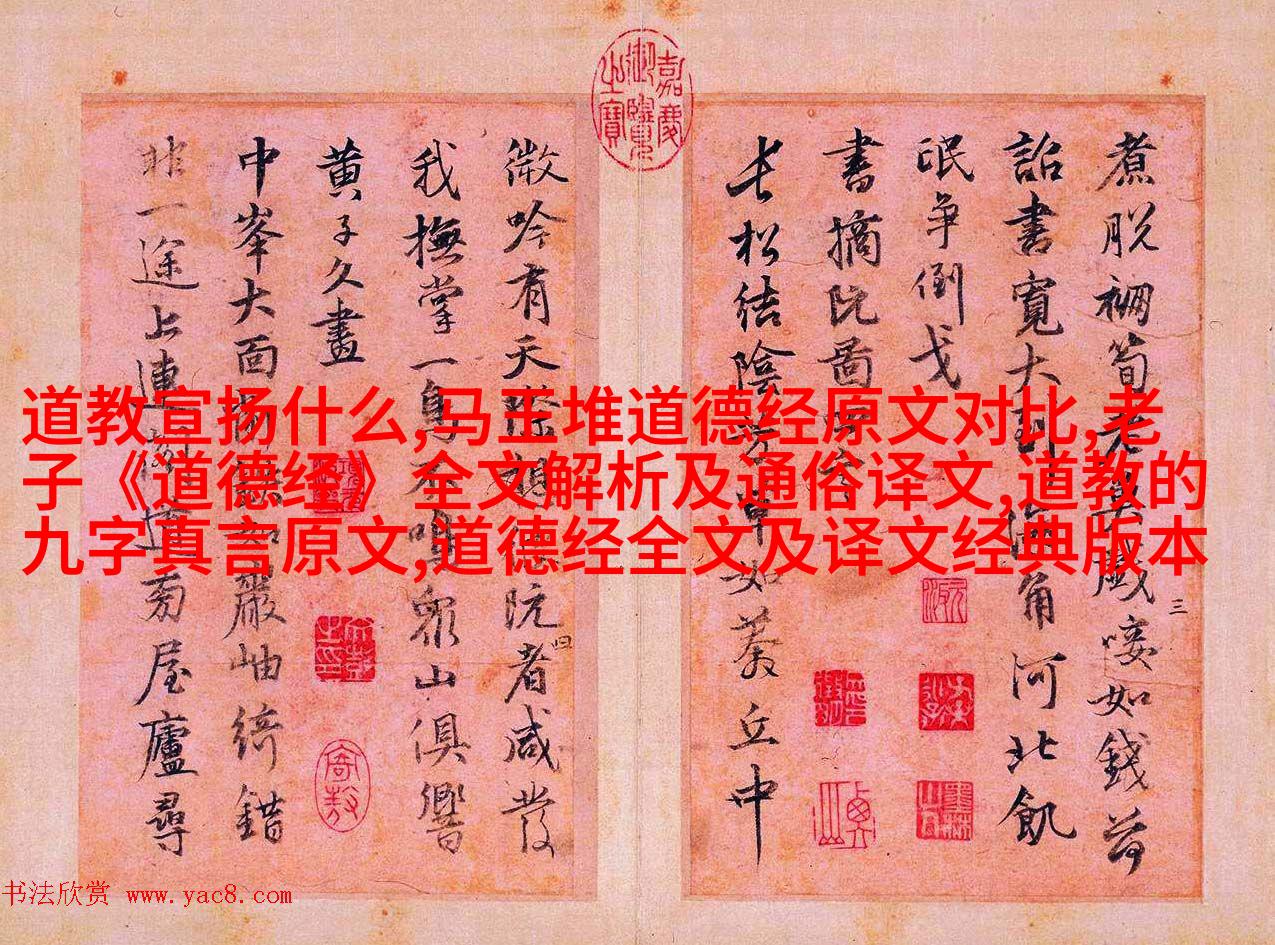 道教宣扬什么,马王堆道德经原文对比,老
子《道德经》全文解析及通俗译文,道教的
九字真言原文,道德经全文及译文经典版本
嘉慶御覽之寶
煮脱裯筍老如錢
三
詔書寬大到海角河北飢
氓争倒戈
書摘阮啚
長松結陰草如丘中
微吟有天際阮者咸發
四
我撫掌一山俱響
黄子久畫
中峯大面如巖岫綺錯
非一途上連旁屋廬尋
书法欣赏 www.yac8.com